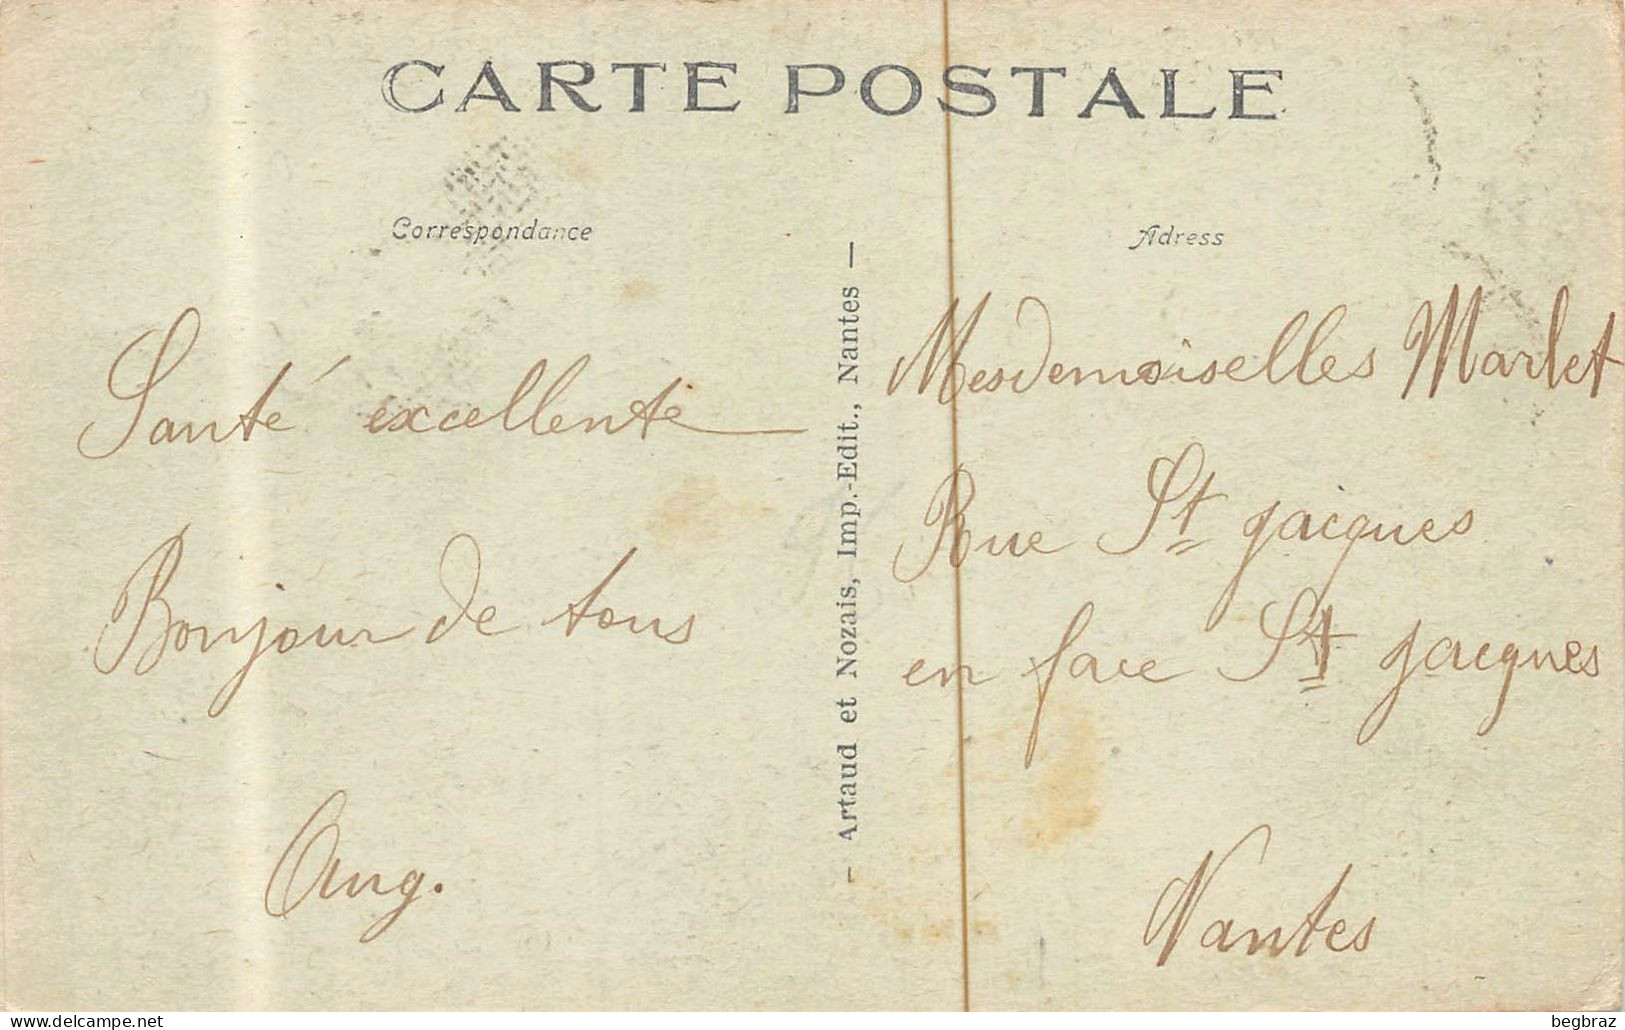 CARTE POSTALE
Correspondance
Adress
Santé excellente
Bonjour de tous
Aug.
- Artaud et Nozais, Imp.-Edit., Nantes -
Mesdemoiselles Marlet
Rue St Jacques
en face St Jacques
Nantes
www.delcampe.net
begbraz